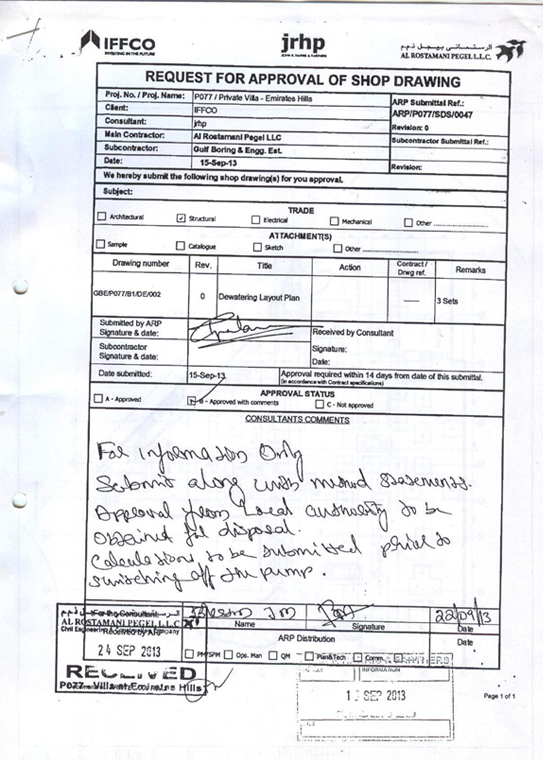 IFFCO
INVESTING IN THE FUTURE
jrhp
AL ROSTAMANI PEGEL L.L.C.
REQUEST FOR APPROVAL OF SHOP DRAWING
Proj. No. / Proj. Name: P077 / Private Villa - Emirates Hills
ARP Submittal Ref.:
Client: IFFCO
ARP/P077/SDS/0047
Consultant: jrhp
Revision: 0
Main Contractor: Al Rostamani Pegel LLC
Subcontractor Submittal Ref.:
Subcontractor: Gulf Boring & Engg. Est.
Date: 15-Sep-13
Revision:
We hereby submit the following shop drawing(s) for you approval.
Subject:
TRADE
Architectural Structural Electrical Mechanical Other
ATTACHMENT(S)
Sample Catalogue Sketch Other
Drawing number Rev. Title Action Contract / Drwg ref. Remarks
GBE/P077/B1/DE/002 0 Dewatering Layout Plan 3 Sets
Submitted by ARP
Signature & date:
Received by Consultant
Subcontractor
Signature & date:
Signature:
Date:
Date submitted: 15-Sep-13.
Approval required within 14 days from date of this submittal.
(in accordance with Contract specifications)
APPROVAL STATUS
A - Approved B - Approved with comments C - Not approved
CONSULTANTS COMMENTS
For Information Only
Submit along with method statements.
Approval from Local authority to be
obtained for disposal.
Calculations to be submitted prior to
switching off the pump.
For the Consultant:
22/09/13
AL ROSTAMANI PEGEL L.L.C
Name Signature Date
Received by ARP
ARP Distribution
Date
24 SEP 2013
PM/SPM Ops. Man QM Plan&Tech Comm.
RECEIVED
P077 - Villa at Emirates Hills
INFORMATION
SEP 2013
Page 1 of 1